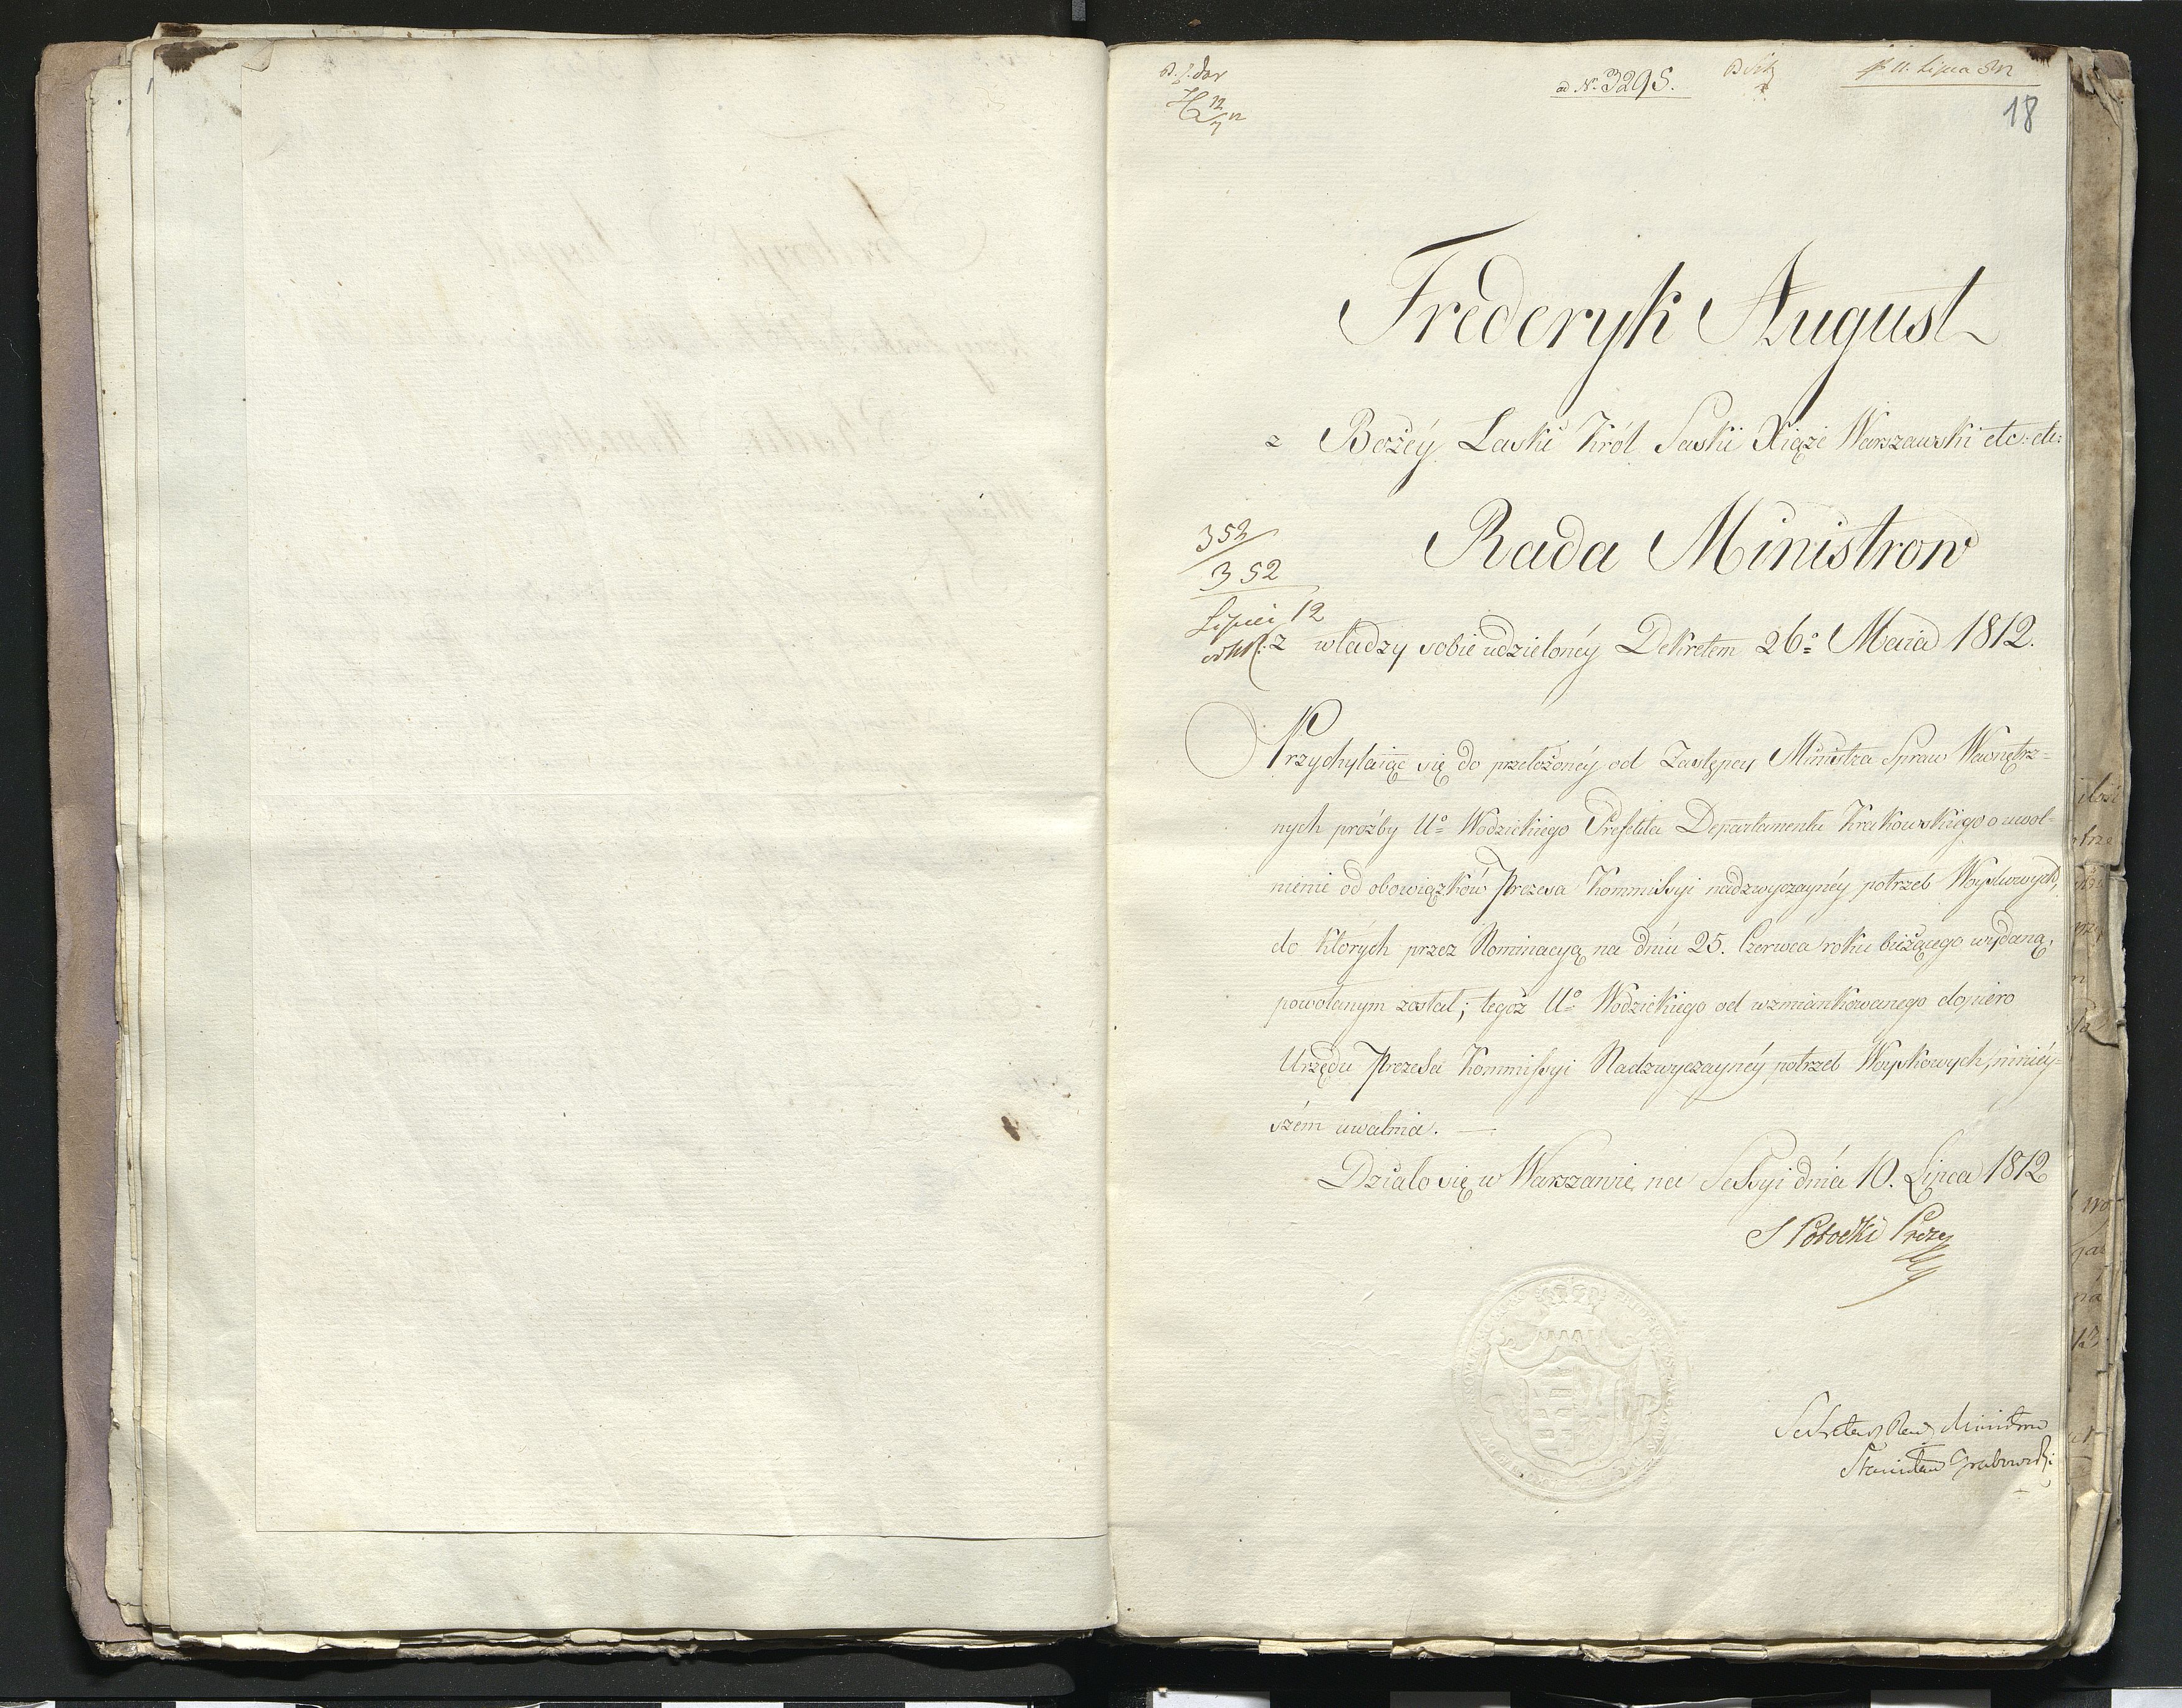 ad N. 3295.
11. Lipca 812
18
Frederyk August
z Bożéy Łaski Król Saski Xiąże Warszawski etc: etc:
Rada Ministrow
352
352
Lipiec 12
z władzy sobie udzielonéy Dekretem 26º Maia 1812.
Przychylaiąc się do przełożonéy od Zastępcy Ministra Spraw Wewnętrz-
nych proźby Uº Wodzickiego Prefekta Departamentu Krakowskiego o uwol-
nienie od obowiązków Prezesa Kommissyi nadzwyczaynéy potrzeb Woyskowych,
do których przez Nominacyą na dniu 25. Czerwca roku bieżącego wydaną,
powołanym został; tegoż Uº Wodzickiego od wzmiankowanego dopiero
Urzędu Prezesa Kommissyi Nadzwyczaynéy potrzeb Woyskowych, niniey-
szém uwalnia. —
Działo się w Warszawie na Sessyi dnia 10. Lipca 1812
S Potocki Prezy
Sekretarz Rady Ministrow
Stanisław Grabowski